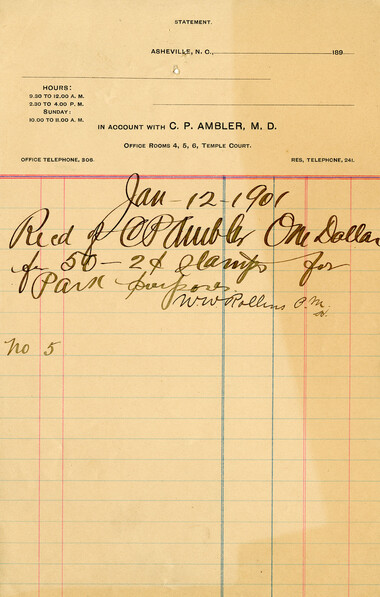 STATEMENT.
ASHEVILLE, N. C., 189
HOURS:
9.30 TO 12.00 A. M.
2.30 TO 4.00 P. M.
SUNDAY:
10.00 TO 11.00 A. M.
IN ACCOUNT WITH C. P. AMBLER, M. D.
OFFICE ROOMS 4, 5, 6, TEMPLE COURT.
OFFICE TELEPHONE, 508. RES, TELEPHONE, 241.
Jan - 12 - 1901
Recd of C P Ambler One Dollar
for 50 - 2¢ stamps for
Park purposes.
WW Rollins P.M.
No 5